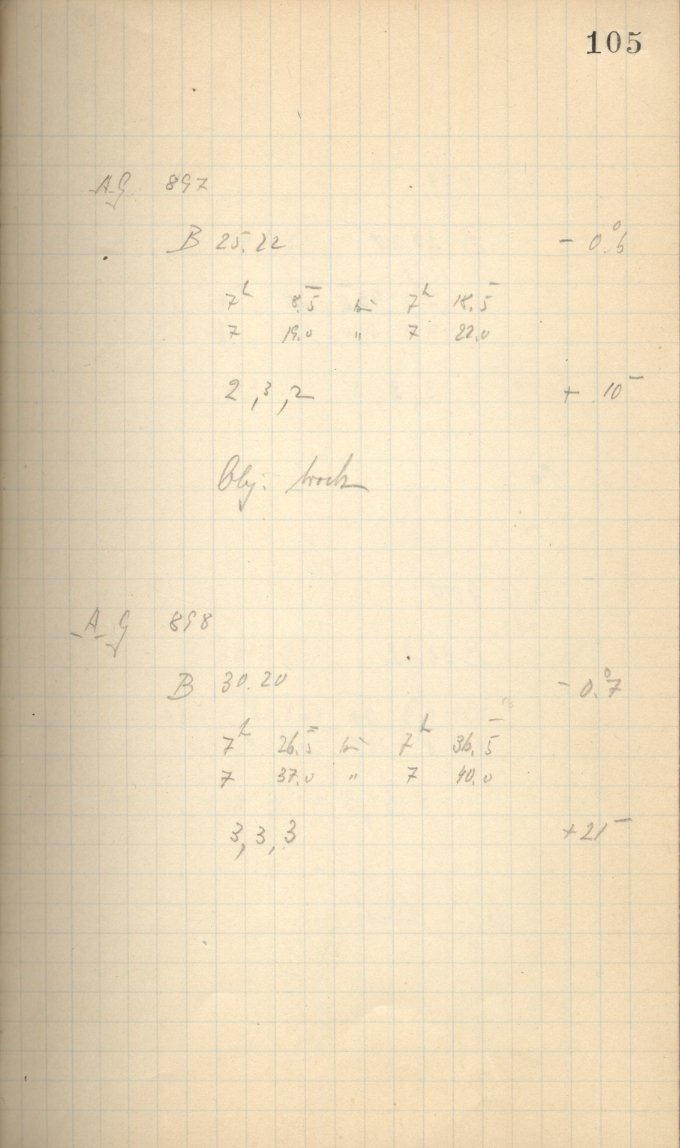 105
A.G. 897
B 25.22 − 0.°6
7h 8.5 bis 7h 18.5
7 19.0 " 7 22.0
2, 3, 2 + 10m
Obj. trock
A G 898
B 30.20 − 0.°7
7h 26.5 bis 7h 36.5
7 37.0 " 7 40.0
3, 3, 3 + 21m